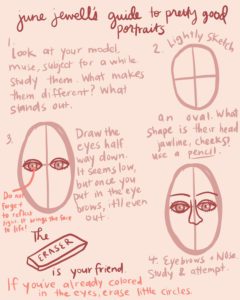 june jewell's guide to pretty good
portraits
1.
Look at your model,
muse, subject for a while.
Study them. What makes
them different? What
stands out.
2. Lightly Sketch
an oval. What
shape is their head,
jawline, cheeks?
use a pencil.
3.
Draw the
eyes half
way down.
It seems low,
but once you
put in the eye
brows, it'll even
out.
Do not
forget
to reflect
light. It brings the face
to life!
The
ERASER
is your friend.
If you've already colored
in the eyes, erase little circles.
4. Eyebrows + Nose.
Study & attempt.